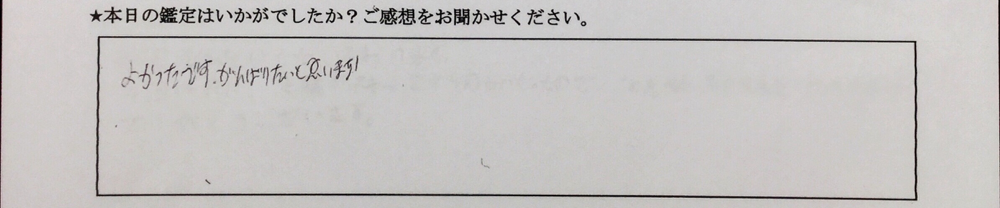 ★本日の鑑定はいかがでしたか？ご感想をお聞かせください。
よかったです。がんばりたいと思います！